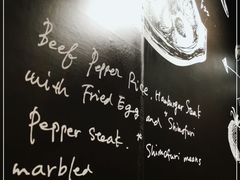 Beef Pepper Rice Hamburger Steak
with Fried Egg and Shimofuri
Pepper Steak. * Shimofuri means
marbled